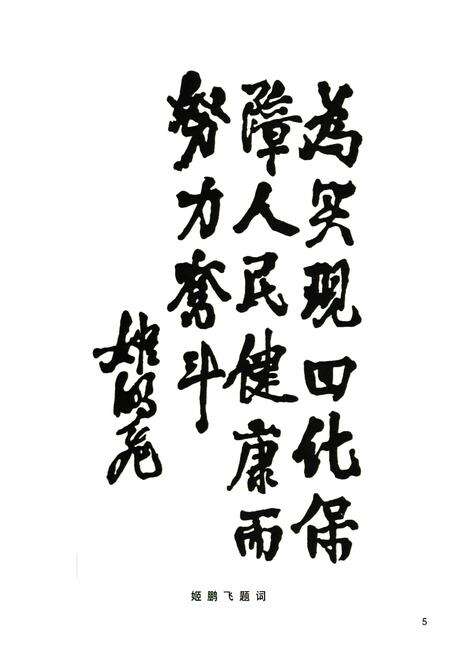 為实现四化保
障人民健康而
努力奮斗
姬鹏飛
姬鹏飞题词
5